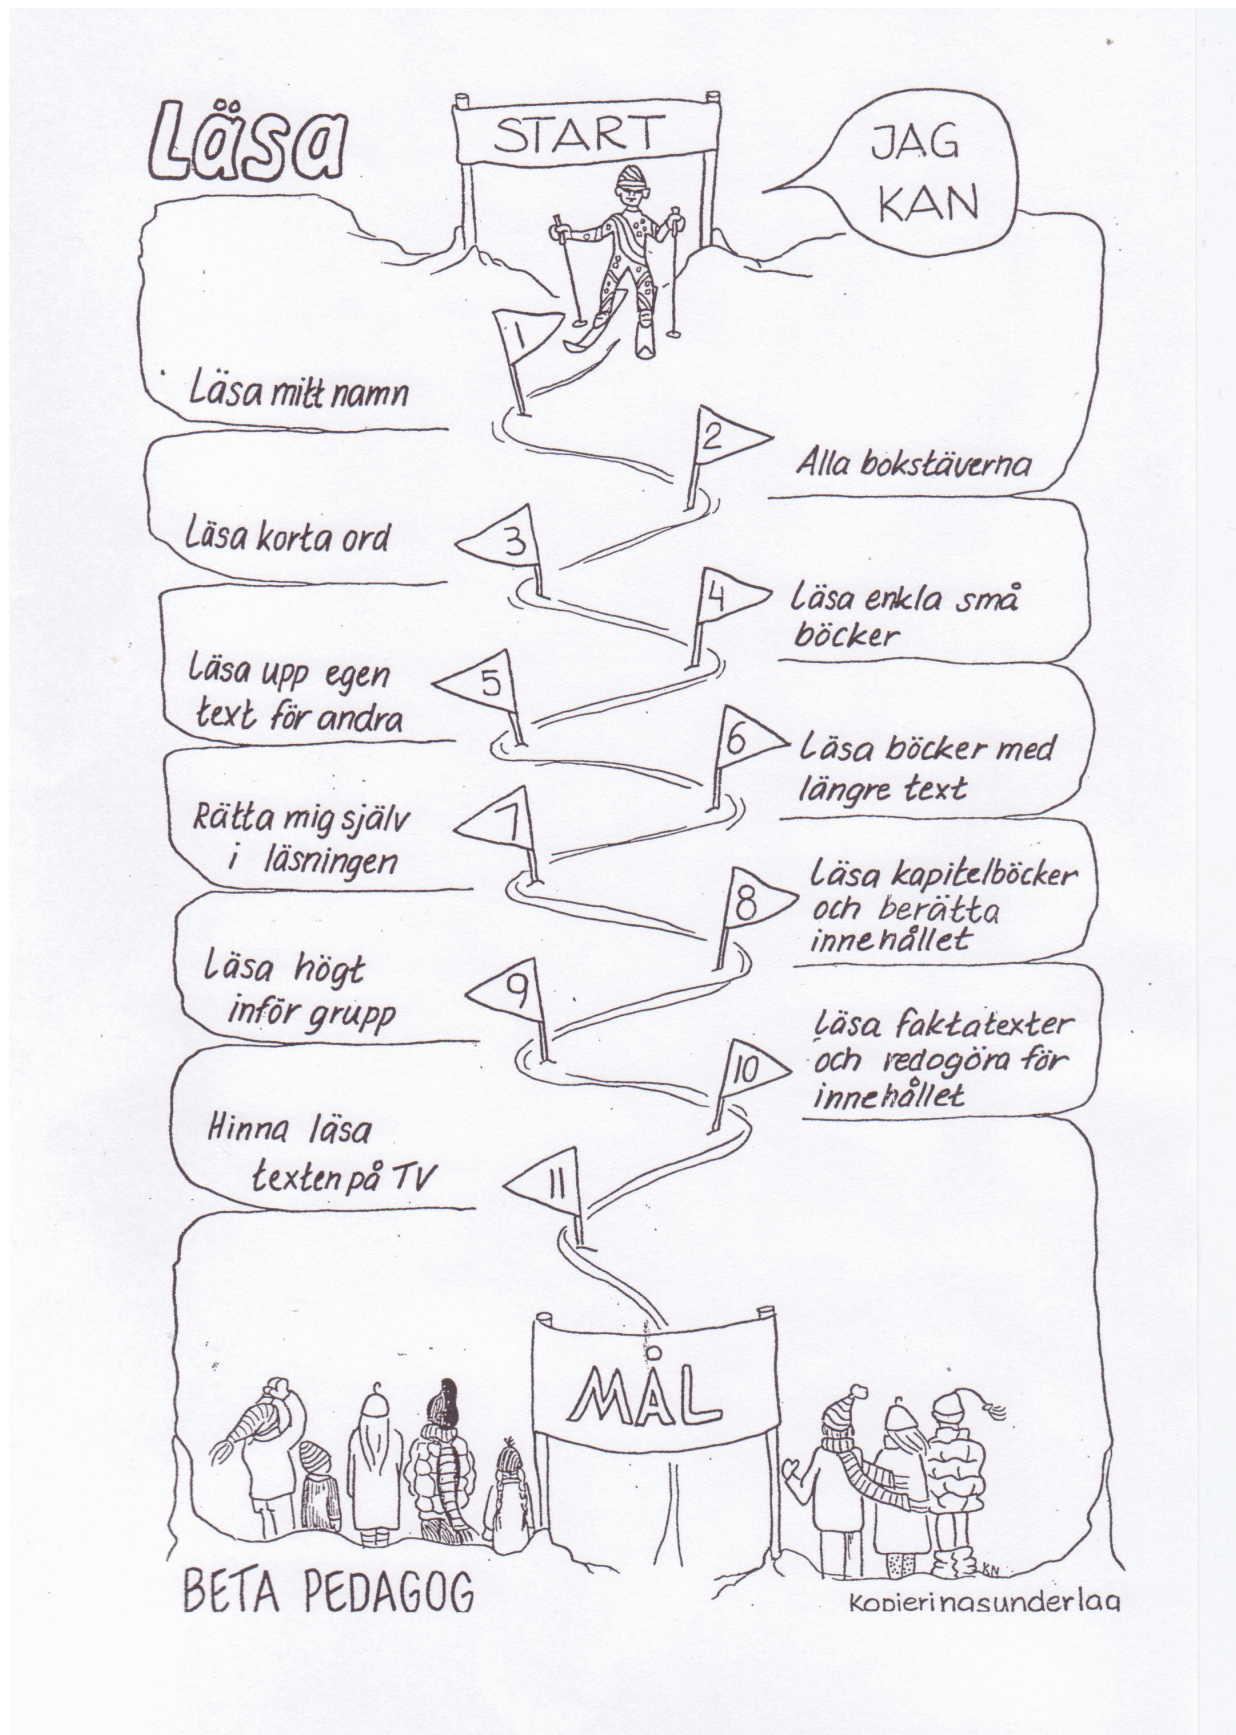 Läsa
START
JAG
KAN
1
Läsa mitt namn
2
Alla bokstäverna
3
Läsa korta ord
4
Läsa enkla små
böcker
5
Läsa upp egen
text för andra
6
Läsa böcker med
längre text
7
Rätta mig själv
i läsningen
8
Läsa kapitelböcker
och berätta
innehållet
9
Läsa högt
inför grupp
10
Läsa faktatexter
och redogöra för
innehållet
11
Hinna läsa
texten på TV
MÅL
KN
BETA PEDAGOG
Kopieringsunderlag